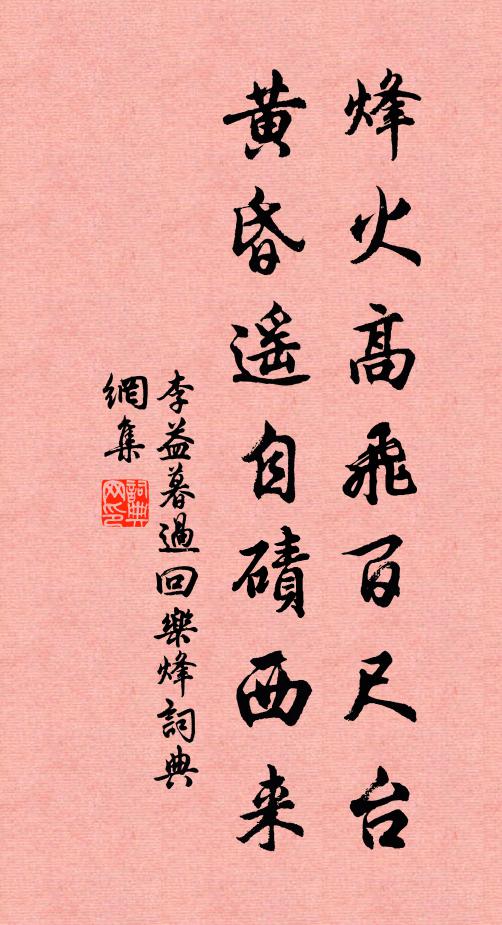 烽火高飛百尺台
黄昏遥自磧西来
李益暮過回樂烽詞典
網集
詞典网印